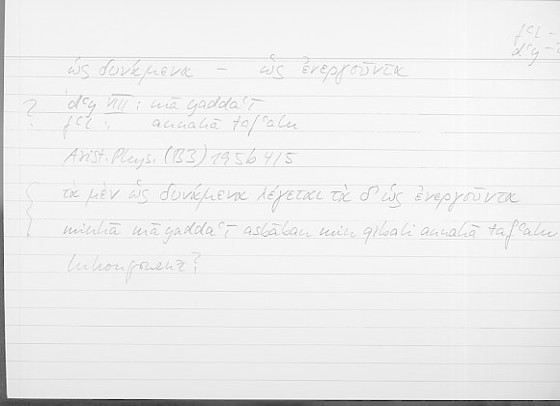 fʿl –
dʿy –
ὡς δυνάμενα – ὡς ἐνεργοῦντα
? dʿy VIII : mā yaddaʿī
fʿl : annahā tafʿalu
Arist. Phys. (B3) 195b 4/5
τὰ μὲν ὡς δυνάμενα λέγεται τὰ δ' ὡς ἐνεργοῦντα
minhā mā yaddaʿī asbāban min qibali annahā tafʿalu
Inkongruenz?